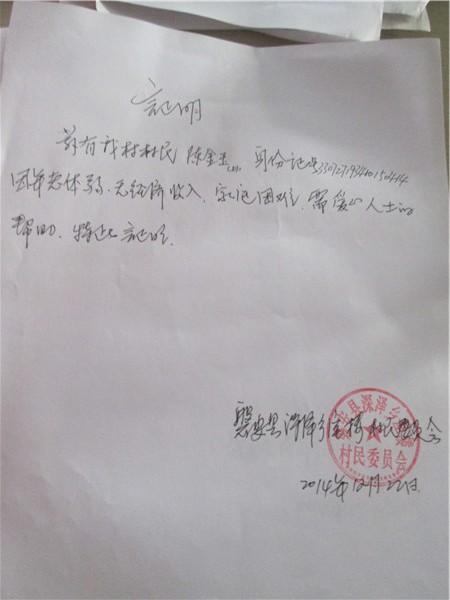 证明
兹有我村村民陈金玉(女),身份证号330727193410150414
因年老体弱、无经济收入、家庭困难、需爱心人士的
帮助、特此证明.
磐安县深泽乡金 村村民委员会
县深泽
村民委员会
2014年12月22日